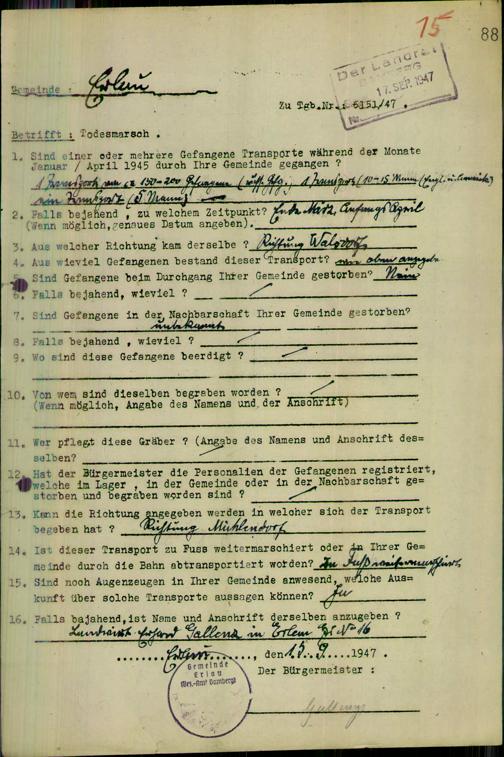 15
88
Der Landrat
17. SEP. 1947
Nr.
Gemeinde : Erlau
Zu Tgb.Nr. 6151/47 .
Betrifft : Todesmarsch .
1. Sind einer oder mehrere Gefangene Transporte während der Monate
Januar / April 1945 durch Ihre Gemeinde gegangen ?
1 Transport von ca 150-200 Gefangene ( 1 Transport (10-15 Mann (
ein Transport (5 Mann)
2. Falls bejahend, zu welchem Zeitpunkt? Ende März, Anfangs April
(Wenn möglich,genaues Datum angeben).
3. Aus welcher Richtung kam derselbe ? Richtung Walsdorf
4. Aus wieviel Gefangenen bestand dieser Transport? wie oben angegeben
5. Sind Gefangene beim Durchgang Ihrer Gemeinde gestorben? Nein
6. Falls bejahend, wieviel ?
7. Sind Gefangene in der Nachbarschaft Ihrer Gemeinde gestorben?
unbekannt
8. Falls bejahend , wieviel ?
9. Wo sind diese Gefangene beerdigt ?
10. Von wem sind dieselben begraben worden ?
(Wenn möglich, Angabe des Namens und der Anschrift)
11. Wer pflegt diese Gräber ? (Angabe des Namens und Anschrift des=
selben?
12. Hat der Bürgermeister die Personalien der Gefangenen registriert,
welche im Lager , in der Gemeinde oder in der Nachbarschaft ge=
storben und begraben worden sind ?
13. Kann die Richtung angegeben werden in welcher sich der Transport
begeben hat ? Richtung Mühlendorf
14. Ist dieser Transport zu Fuss weitermarschiert oder in Ihrer Ge=
meinde durch die Bahn abtransportiert worden? Zu Fuß weitermarschiert
15. Sind noch Augenzeugen in Ihrer Gemeinde anwesend, welche Aus=
kunft über solche Transporte aussagen können? Ja
16. Falls bajahend,ist Name und Anschrift derselben anzugeben ?
Landwirt Erhard Gallenz in Erlau Hs No 16
Erlau, den 15. 9. 1947 .
Der Bürgermeister :
Gemeinde
Erlau